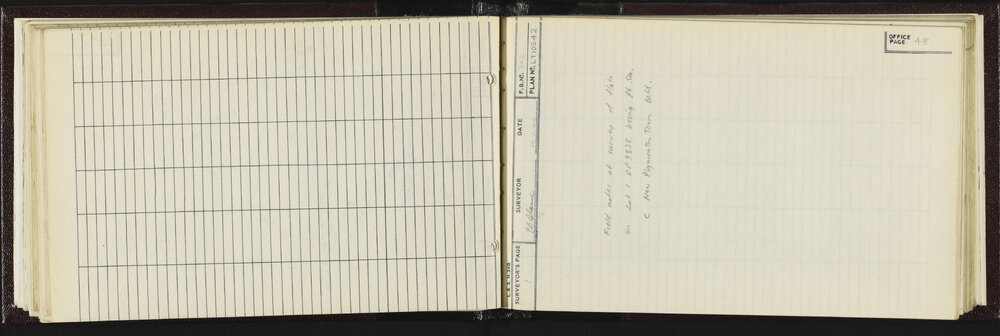 OFFICE
PAGE 48
F.B. Nº.
PLAN Nº. LT10542
DATE
SURVEYOR
SURVEYOR'S PAGE 1
L. & S. H. 26B
Field notes of survey of flats
on Lot 1 DP 9838 being Pt Sec.
C New Plymouth Town Belt.